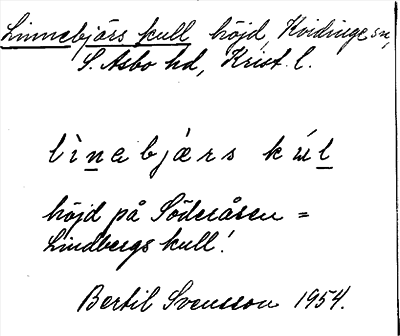 Linnebjärs kull höjd, Kvidinge sn,
S. Åsbo hd, Krist. l.
lìnebjærs kúl
höjd på Söderåsen =
Lindbergs kull!
Bertil Svensson 1954.